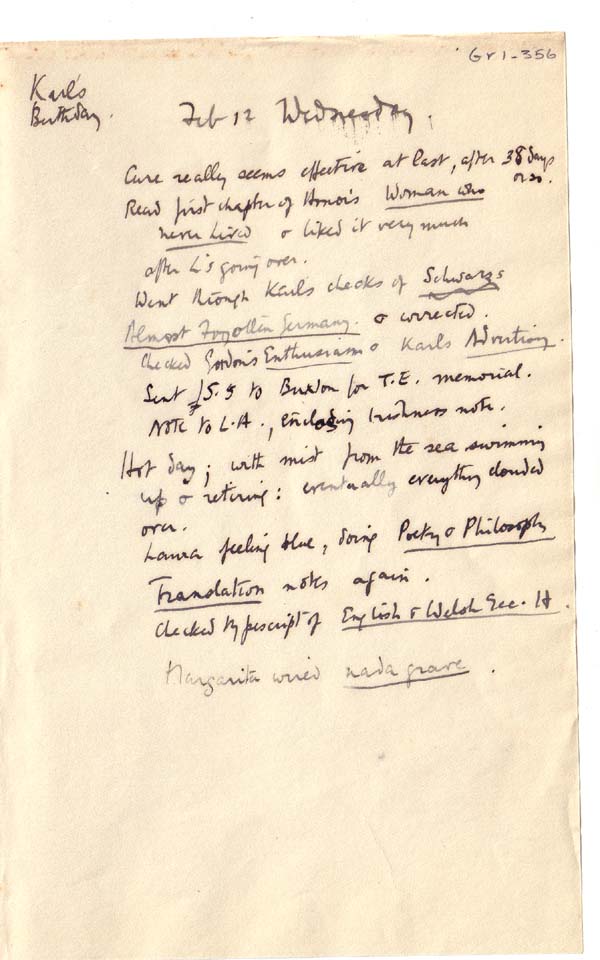 Gr1-356
Karl's
Birthday.
Feb 12 Wednesday.
Cure really seems effective at last, after 38 days
or so.
Read first chapter of Honor's Woman who
never Lived & liked it very much
after L's going over.
Went through Karl's checks of Schwarz's
Almost Forgotten Germany. & corrected.
Checked Gordon's Enthusiasm & Karl's Advertising.
Sent £5.5 to Buxton for T.E. memorial.
Note to L.A., enclosing Irishness note.
Hot day; with mist from the sea swimming
up & retiring: eventually everything clouded
over.
Laura feeling blue, doing Poetry & Philosophy
Translation notes again.
Checked typescript of English & Welsh Sec. II.
Margarita wired nada grave.